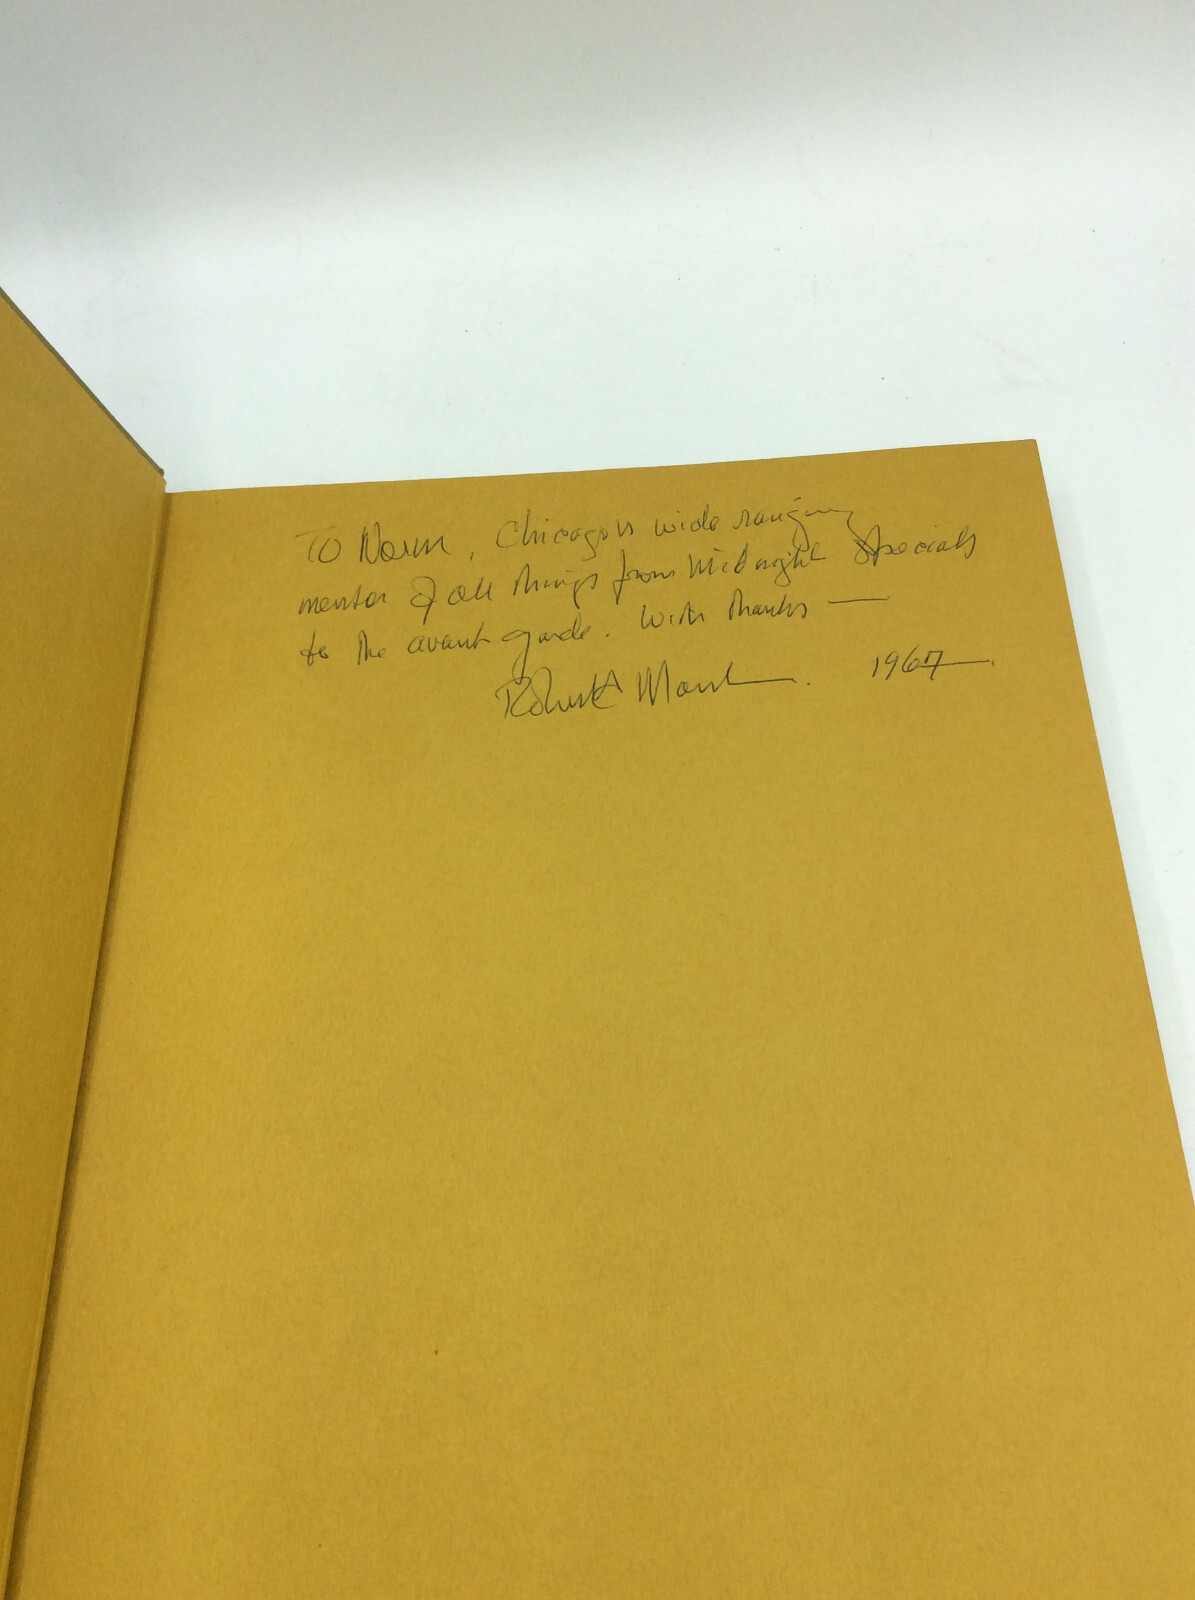 To Norm, Chicago's wide ranging
mentor of all things from Midnight Specials
to the avant garde. With thanks —
Robert 1967